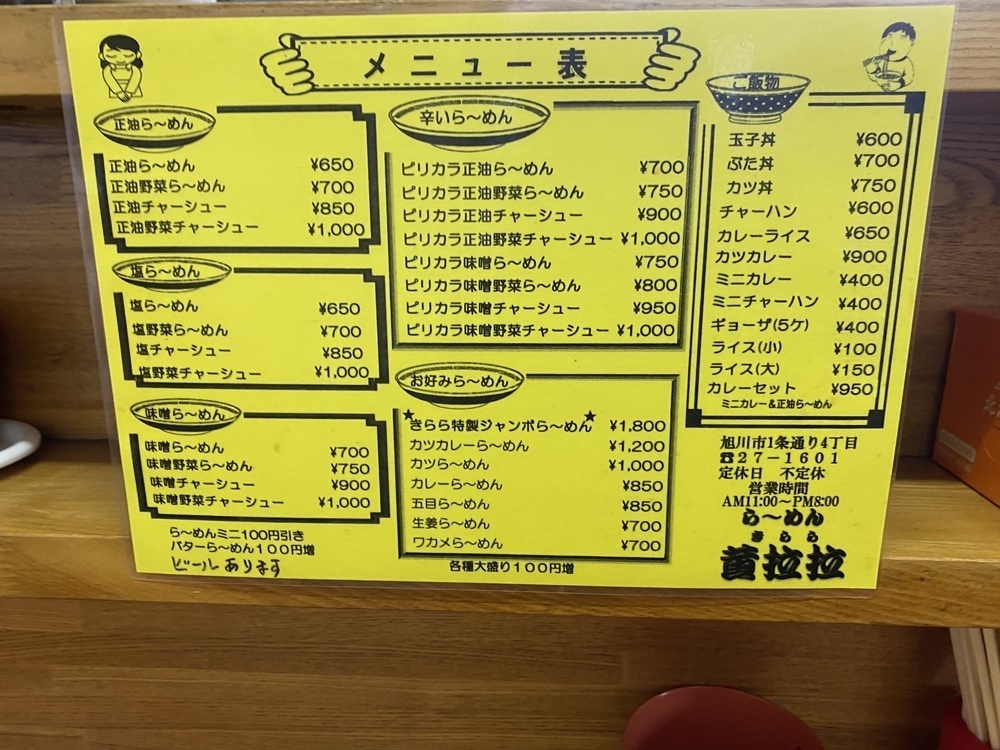 メニュー表
正油ら〜めん
正油ら〜めん ¥650
正油野菜ら〜めん ¥700
正油チャーシュー ¥850
正油野菜チャーシュー ¥1,000
塩ら〜めん
塩ら〜めん ¥650
塩野菜ら〜めん ¥700
塩チャーシュー ¥850
塩野菜チャーシュー ¥1,000
味噌ら〜めん
味噌ら〜めん ¥700
味噌野菜ら〜めん ¥750
味噌チャーシュー ¥900
味噌野菜チャーシュー ¥1,000
ら〜めんミニ100円引き
バターら〜めん100円増
ビールあります
辛いら〜めん
ピリカラ正油ら〜めん ¥700
ピリカラ正油野菜ら〜めん ¥750
ピリカラ正油チャーシュー ¥900
ピリカラ正油野菜チャーシュー ¥1,000
ピリカラ味噌ら〜めん ¥750
ピリカラ味噌野菜ら〜めん ¥800
ピリカラ味噌チャーシュー ¥950
ピリカラ味噌野菜チャーシュー ¥1,000
お好みら〜めん
★きらら特製ジャンボら〜めん★ ¥1,800
カツカレーら〜めん ¥1,200
カツら〜めん ¥1,000
カレーら〜めん ¥850
五目ら〜めん ¥850
生姜ら〜めん ¥700
ワカメら〜めん ¥700
各種大盛り100円増
ご飯物
玉子丼 ¥600
ぶた丼 ¥700
カツ丼 ¥750
チャーハン ¥600
カレーライス ¥650
カツカレー ¥900
ミニカレー ¥400
ミニチャーハン ¥400
ギョーザ(5ケ) ¥400
ライス(小) ¥100
ライス(大) ¥150
カレーセット ¥950
ミニカレー&正油ら〜めん
旭川市1条通り4丁目
☎27-1601
定休日 不定休
営業時間
AM11:00〜PM8:00
ら〜めん
きらら
黄拉拉